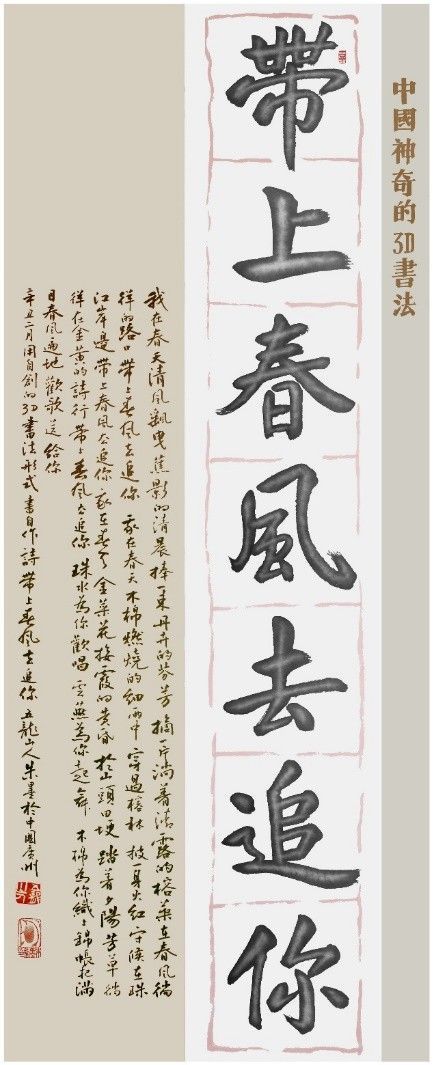 中國神奇的3D書法
帶上春風去追你
我在春天清風飄曳蕉影的清晨捧一束丹卉的芬芳摘一片淌着清露的榕葉在春風徜
徉的路口帶上春風去追你 我在春天木棉燃燒的細雨中穿過榕林披一身火紅守候在珠
江岸邊帶上春風去追你 我在春天金菜花接霞的黃昏於山頭田埂踏着夕陽芳草徜
徉在金黃的詩行帶上春風去追你 珠水為你歡唱雲燕為你起舞 木棉為你織上錦帳把滿
目春風遍地歡歌送給你
辛丑二月用自創的3D書法形式書自作詩帶上春風去追你 五龍山人朱墨於中國廣州